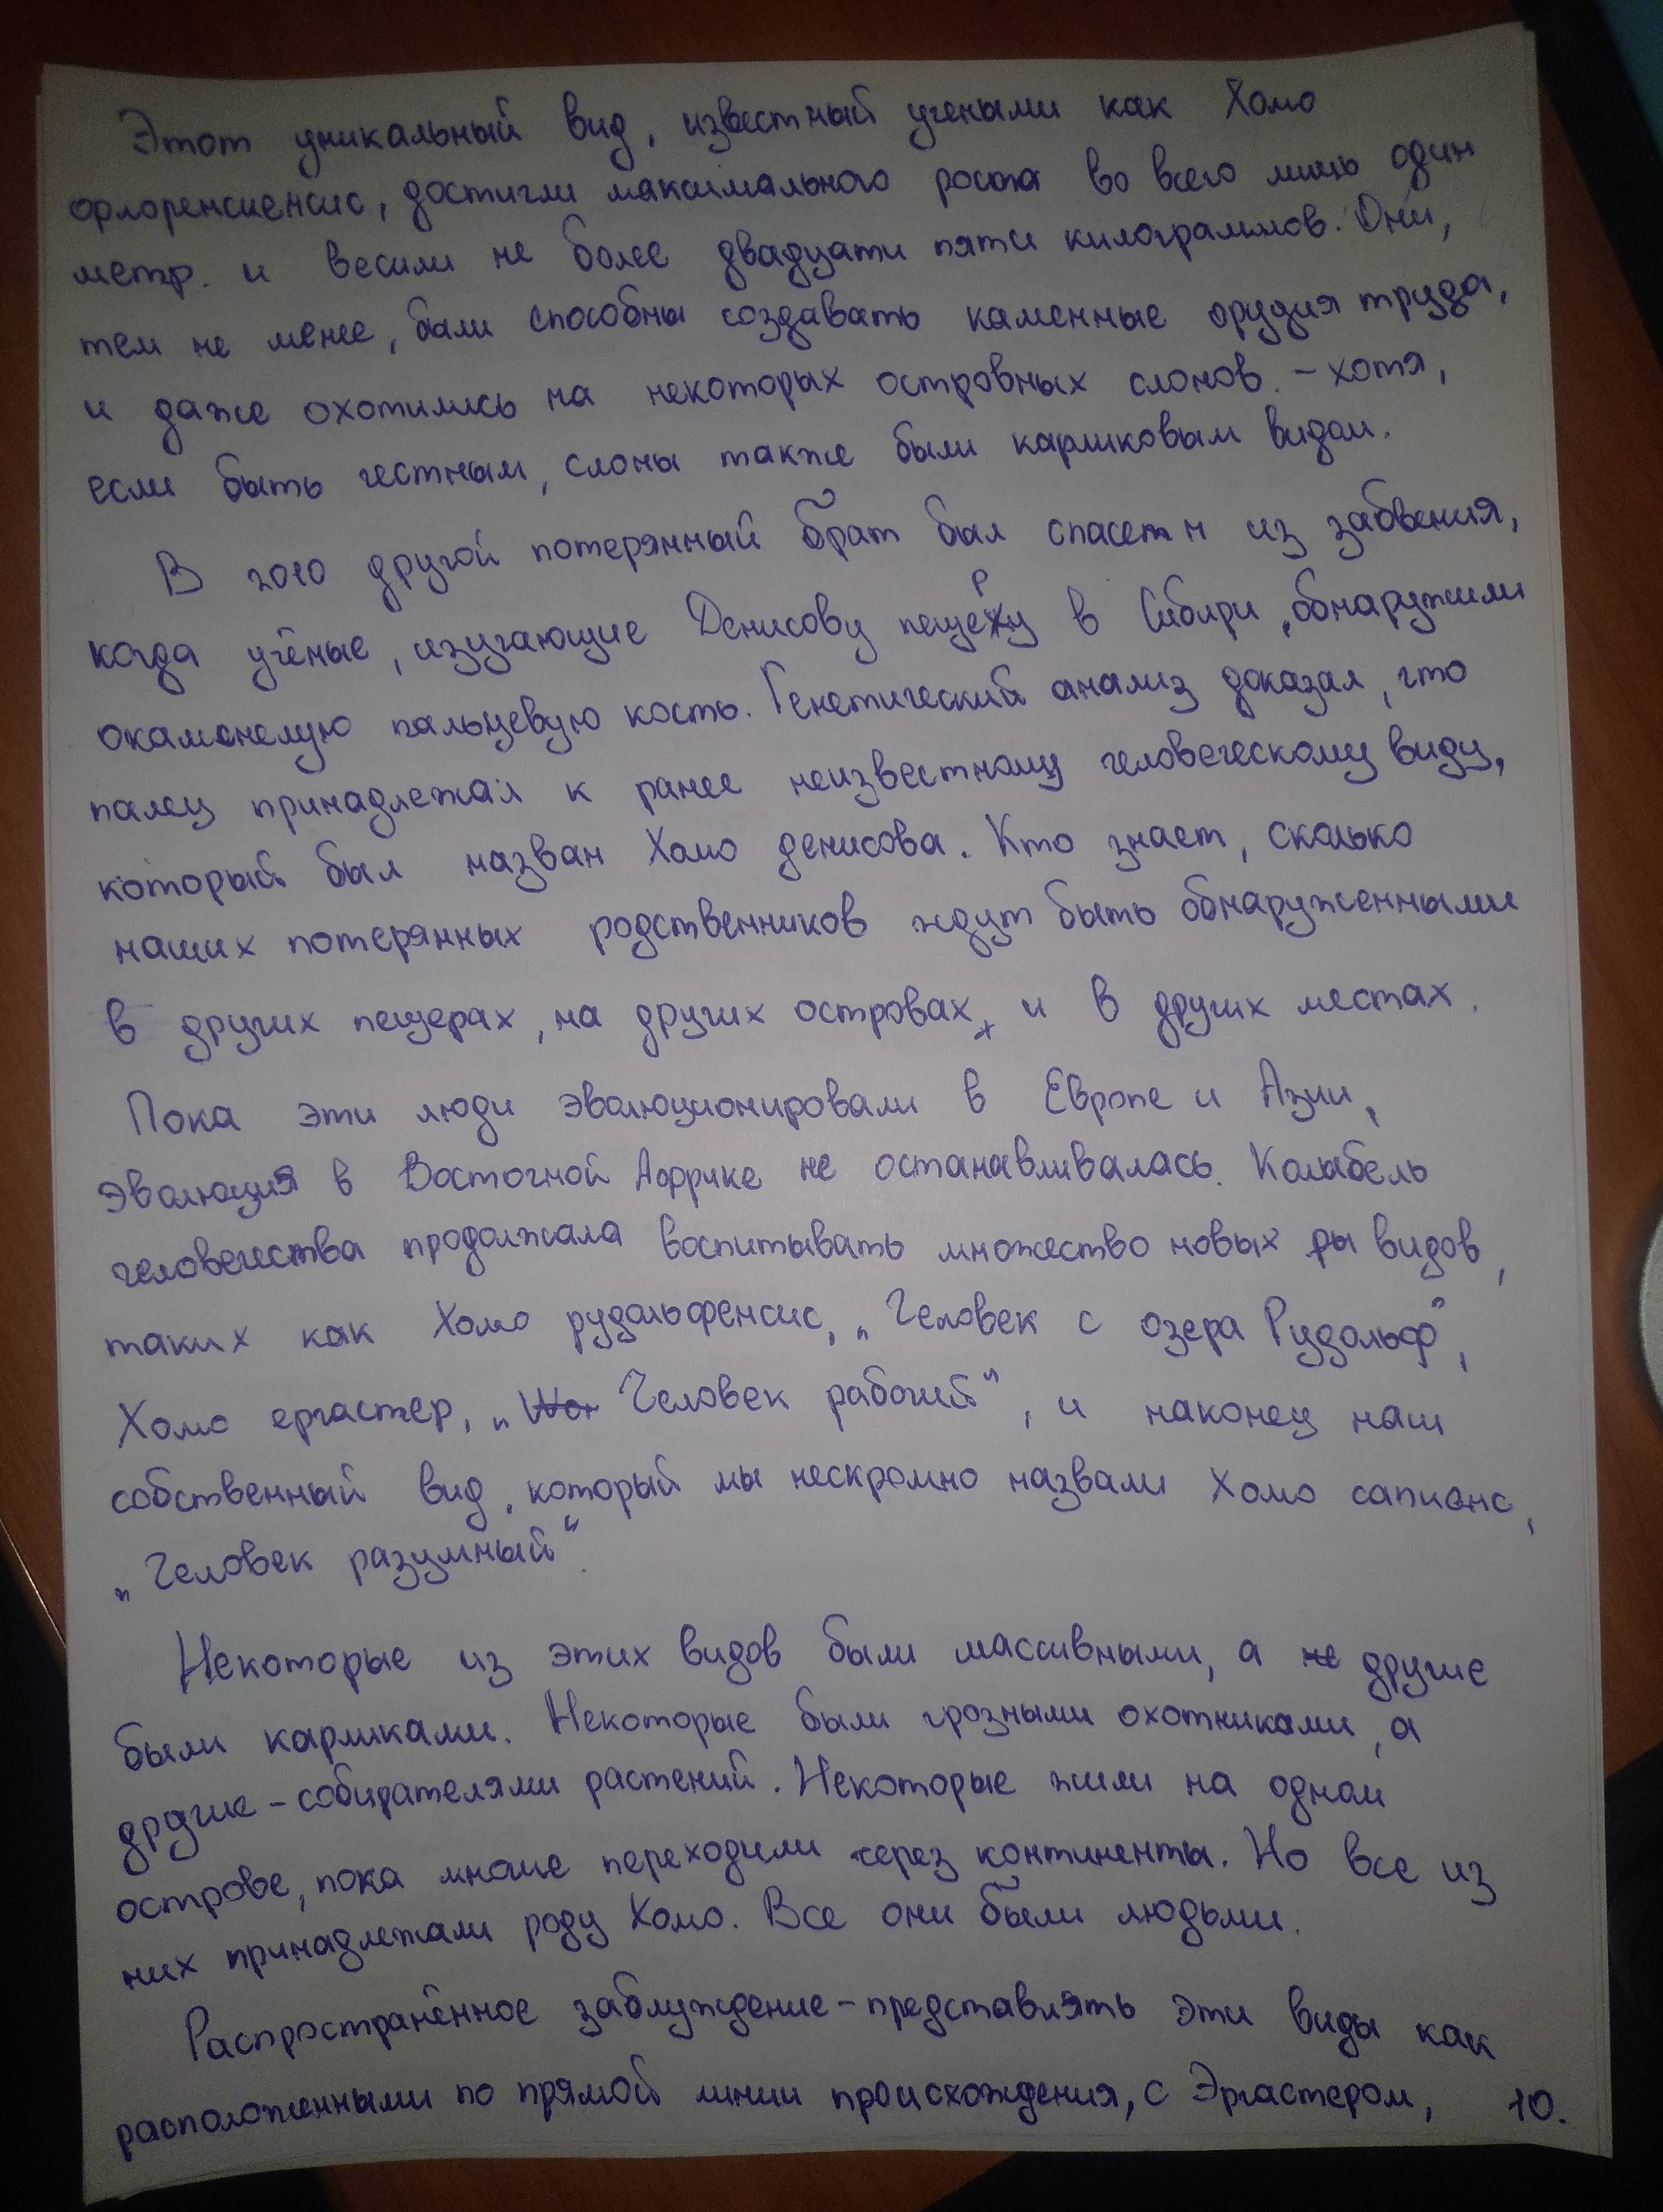 Этот уникальный вид, известный учеными как Хомо
флоренсиенсис, достигли максимального роста во всего лишь один
метр. и весили не более двадцати пяти килограммов. Они,
тем не менее, были способны создавать каменные орудия труда,
и даже охотились на некоторых островных слонов. - хотя,
если быть честным, слоны также были карликовым видом.
В 2010 другой потерянный брат был спасен из забвения,
когда учёные, изучающие Денисову пещеру в Сибири, обнаружили
окаменелую пальцевую кость. Генетический анализ доказал, что
палец принадлежал к ранее неизвестному человеческому виду,
который был назван Хомо денисова. Кто знает, сколько
наших потерянных родственников ждут быть обнаруженными
в других пещерах, на других островах, и в других местах.
Пока эти люди эволюционировали в Европе и Азии,
эволюция в Восточной Африке не останавливалась. Колыбель
человечества продолжала воспитывать множество новых ры видов,
таких как Хомо рудольфенсис, „Человек с озера Рудольф“,
Хомо ергастер, „Человек рабочий“, и наконец наш
собственный вид, который мы нескромно назвали Хомо сапиенс,
„Человек разумный“.
Некоторые из этих видов были массивными, а не другие
были карликами. Некоторые были грозными охотниками, а
другие - собирателями растений. Некоторые жили на одном
острове, пока многие переходили через континенты. Но все из
них принадлежали роду Хомо. Все они были людьми.
Распространённое заблуждение - представлять эти виды как
расположенными по прямой линии происхождения, с Эргастером,
10.